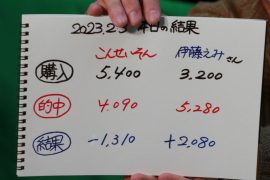 2023.2.5 本日の結果
こんせいそん 伊藤えみさん
購入 5,400 3,200
的中 4,090 5,280
結果 -1,310 +2,080